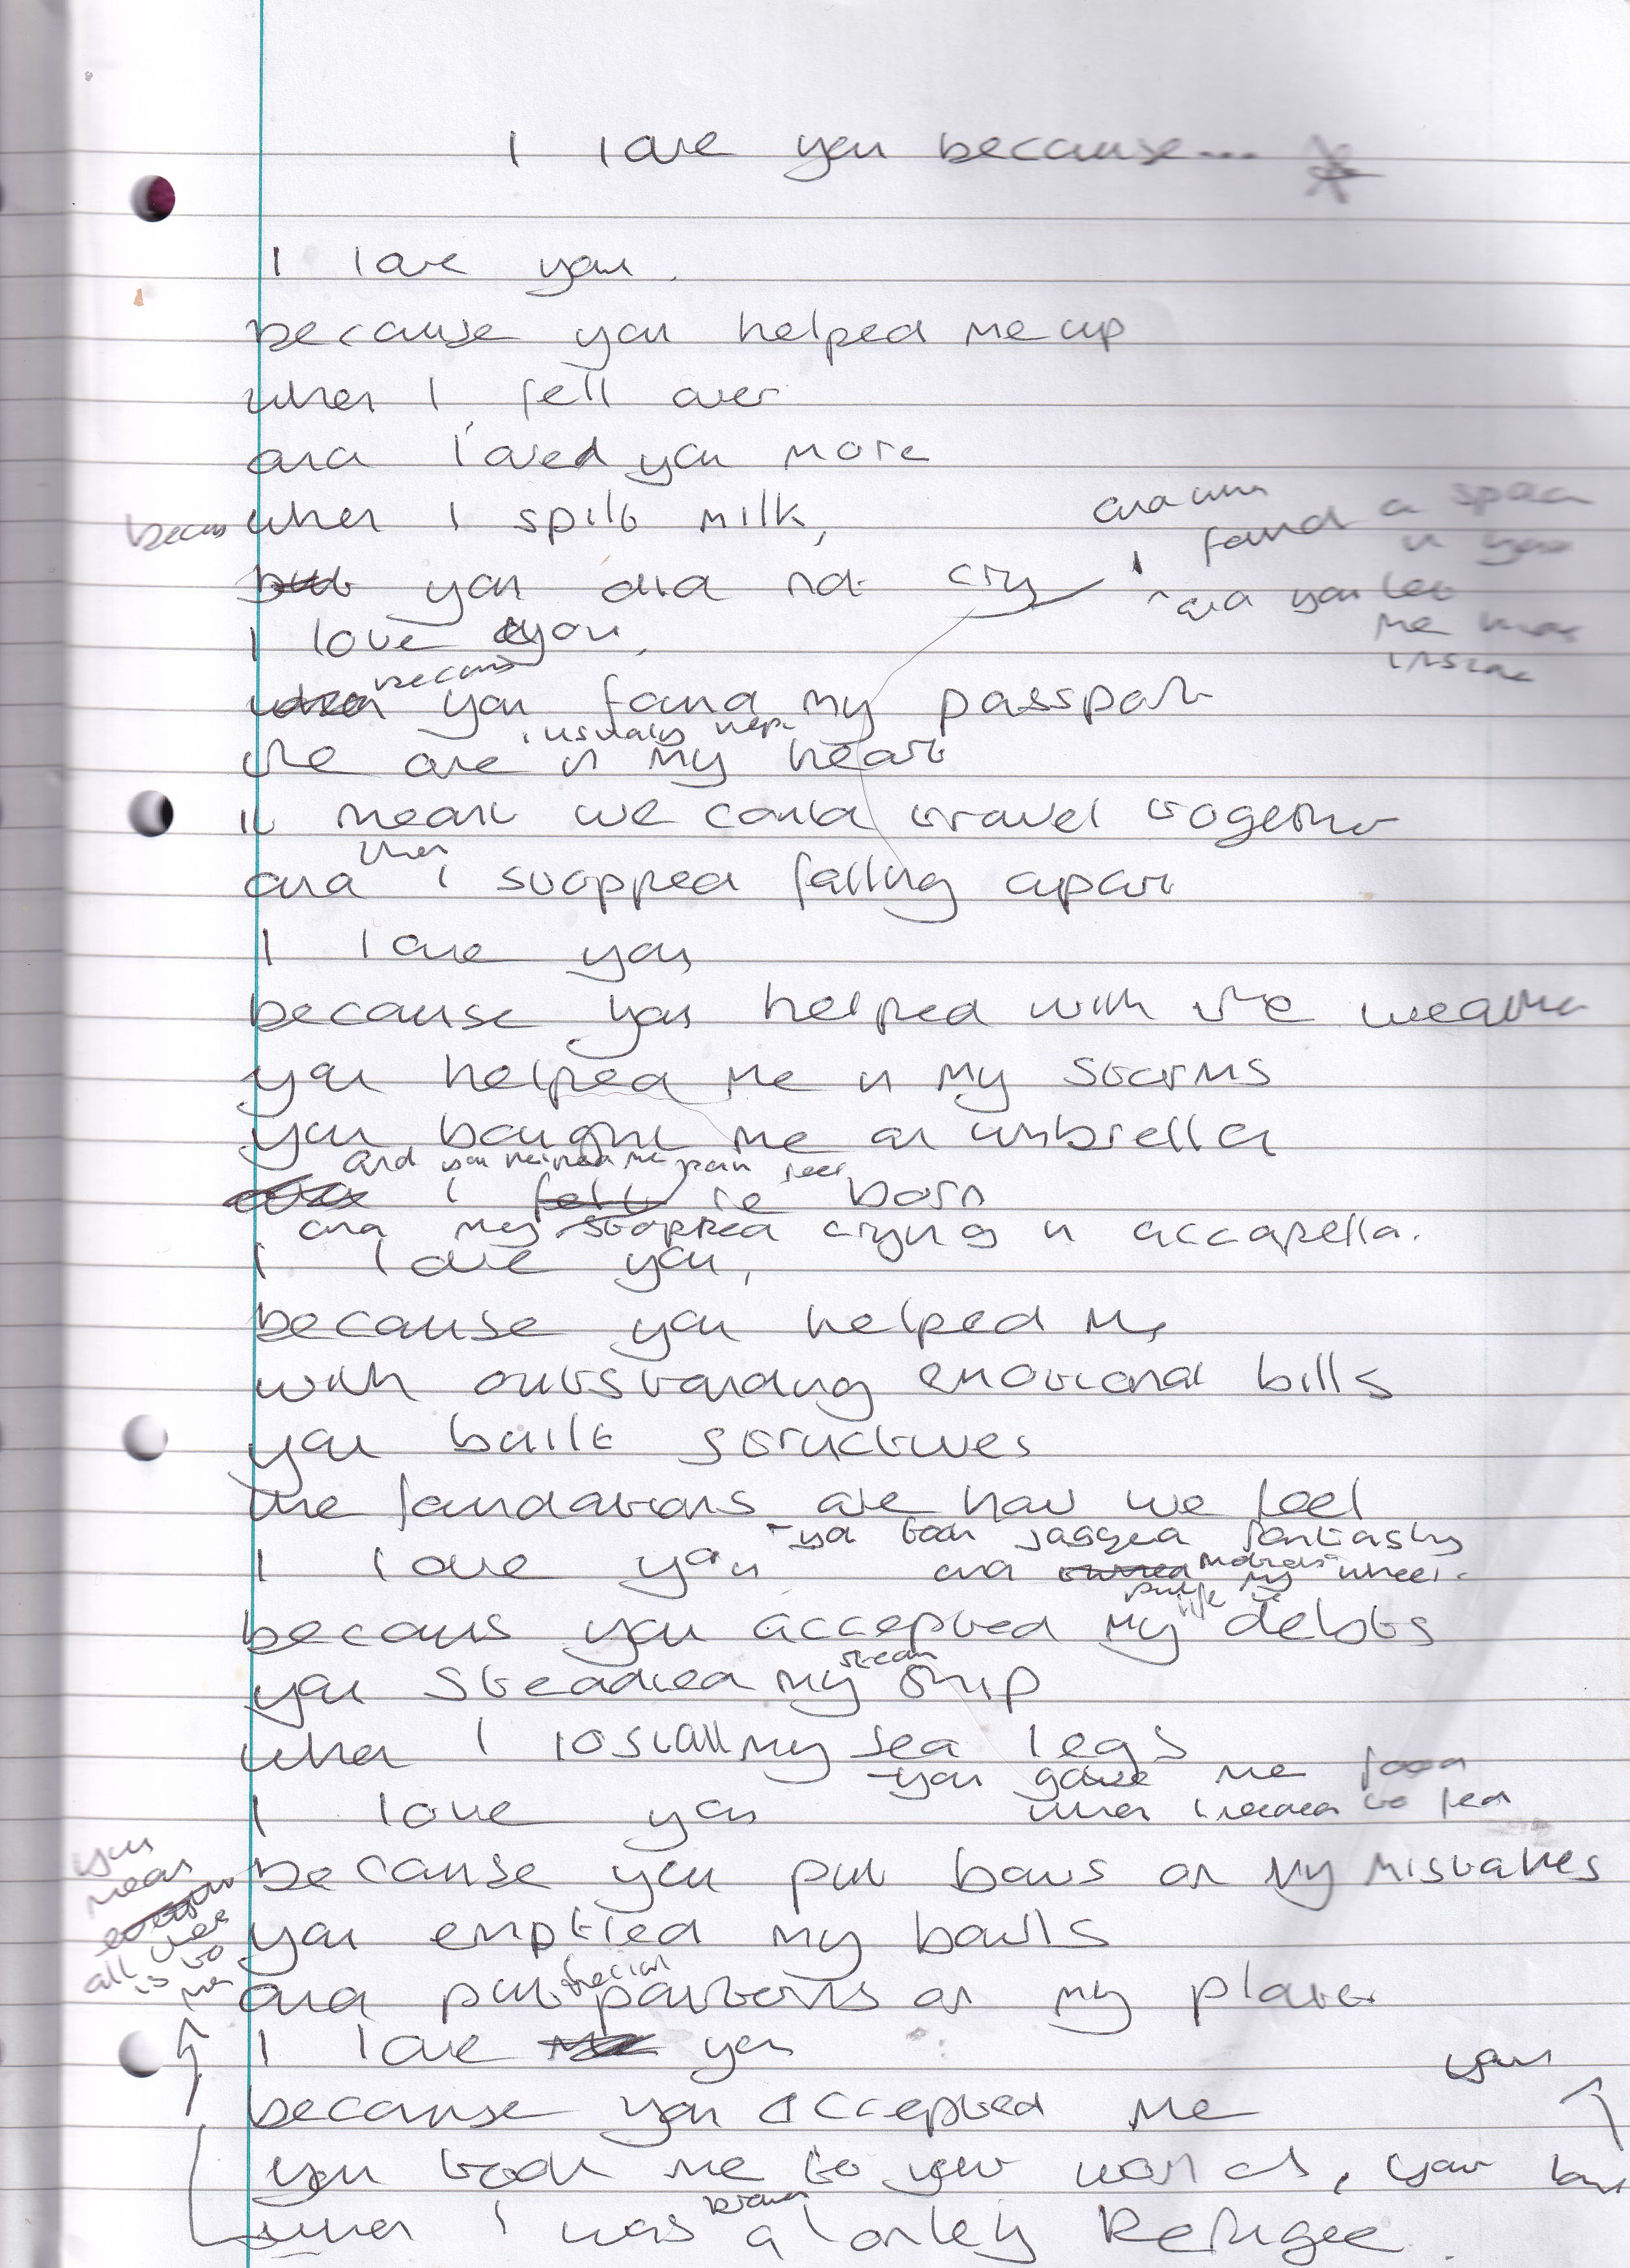 I love you because...
I love you.
because you helped me up
when I fell over
and loved you more
when I spilt milk,
becaus
but you did not cry
and when
I found a space
in you
and you let
me inside
I love you,
when because you found my passport
usually kept
the one in my heart
it meant we could travel together
and then I stopped falling apart
I love you
because you helped with the weather
you helped me in my storms
you bought me an umbrella
and you helped me feel
I felt re born
and my stopped crying in accapella.
I love you,
because you helped me
with outstanding emotional bills
you built structures
the foundations are how we feel
- you took jagged
I love you
and my wheel.
because you accepted my life debts
you steadied my steam ship
when I lost all my sea legs
- you gave me food
I love you when I needed to feed
because you put bows on my mistakes
you emptied my bowls
and put special patterns on my plates
you
mean
all
there
is to
me
I love you
because you accepted me
you
you took me to your world, your
when I was a lonely Refugee.